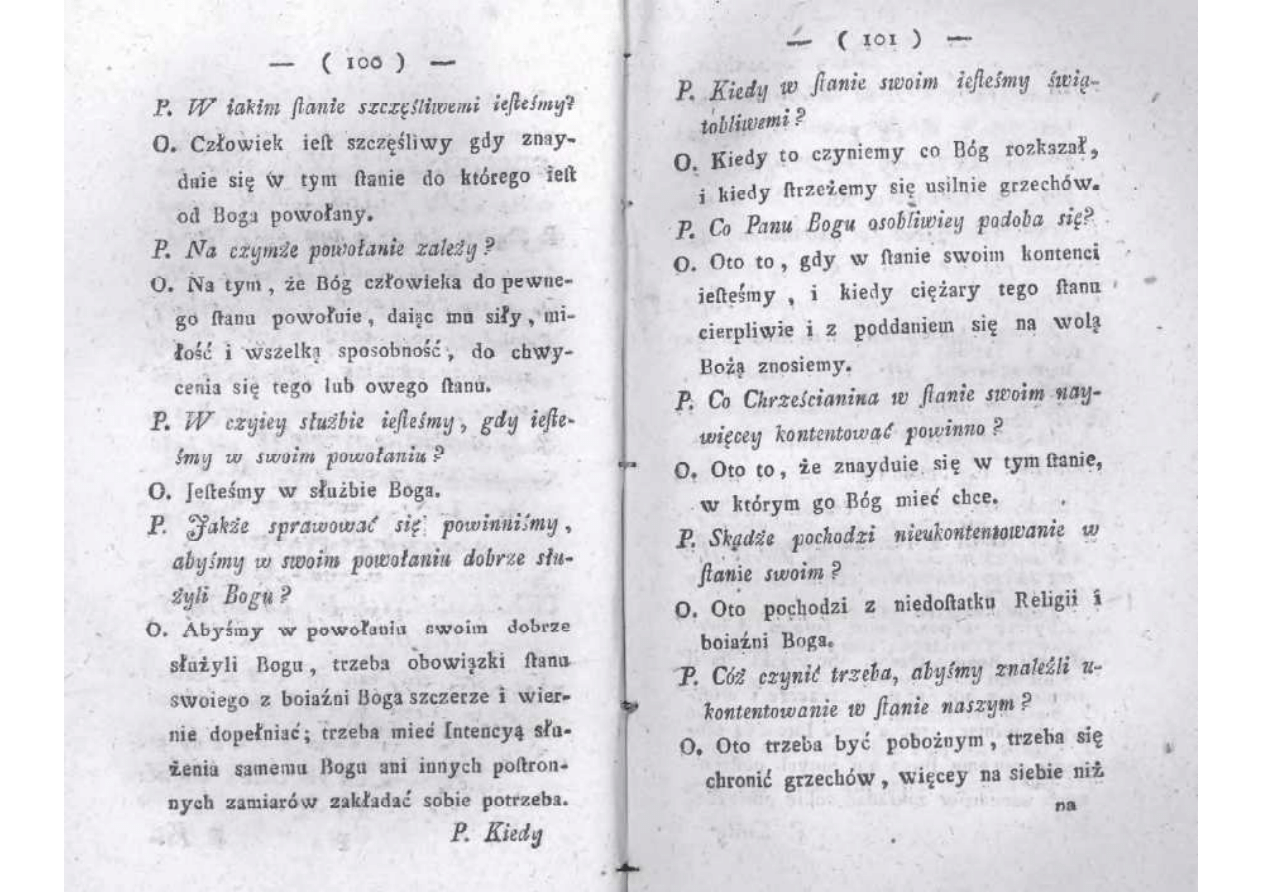 — ( 100 ) —
P. W iakim ſtanie szczęśliwemi ieſteśmy?
O. Człowiek ieſt szczęśliwy gdy znay-
duie się w tym ſtanie do którego ieſt
od Boga powołany.
P. Na czymże powołanie zależy?
O. Na tym, że Bóg człowieka do pewne-
go ſtanu powołuie, daiąc mu siły, mi-
łość i wszelką sposobność, do chwy-
cenia się tego lub owego ſtanu.
P. W czyiey służbie ieſteśmy, gdy ieſte-
śmy w swoim powołaniu?
O. Jeſteśmy w służbie Boga.
P. Jakże sprawować się powinniśmy,
abyśmy w swoim powołaniu dobrze słu-
żyli Bogu?
O. Abyśmy w powołaniu swoim dobrze
służyli Bogu, trzeba obowiązki ſtanu
swoiego z boiaźni Boga szczerze i wier-
nie dopełniać; trzeba mieć Intencyą słu-
żenia samemu Bogu ani innych poſtron-
nych zamiarów zakładać sobie potrzeba.
P. Kiedy
— ( 101 ) —
P. Kiedy w ſtanie swoim ieſteśmy świą-
tobliwemi?
O. Kiedy to czyniemy co Bóg rozkazał,
i kiedy ſtrzeżemy się usilnie grzechów.
P. Co Panu Bogu osobliwiey podoba się?
O. Oto to, gdy w ſtanie swoim kontenci
ieſteśmy, i kiedy ciężary tego ſtanu
cierpliwie i z poddaniem się na wolą
Bożą znosiemy.
P. Co Chrześcianina w ſtanie swoim nay-
więcey kontentować powinno?
O. Oto to, że znayduie się w tym ſtanie,
w którym go Bóg mieć chce.
P. Skądże pochodzi nieukontentowanie w
ſtanie swoim?
O. Oto pochodzi z niedoſtatku Religii i
boiaźni Boga.
P. Cóż czynić trzeba, abyśmy znaleźli u-
kontentowanie w ſtanie naszym?
O. Oto trzeba być pobożnym, trzeba się
chronić grzechów, więcey na siebie niż
na